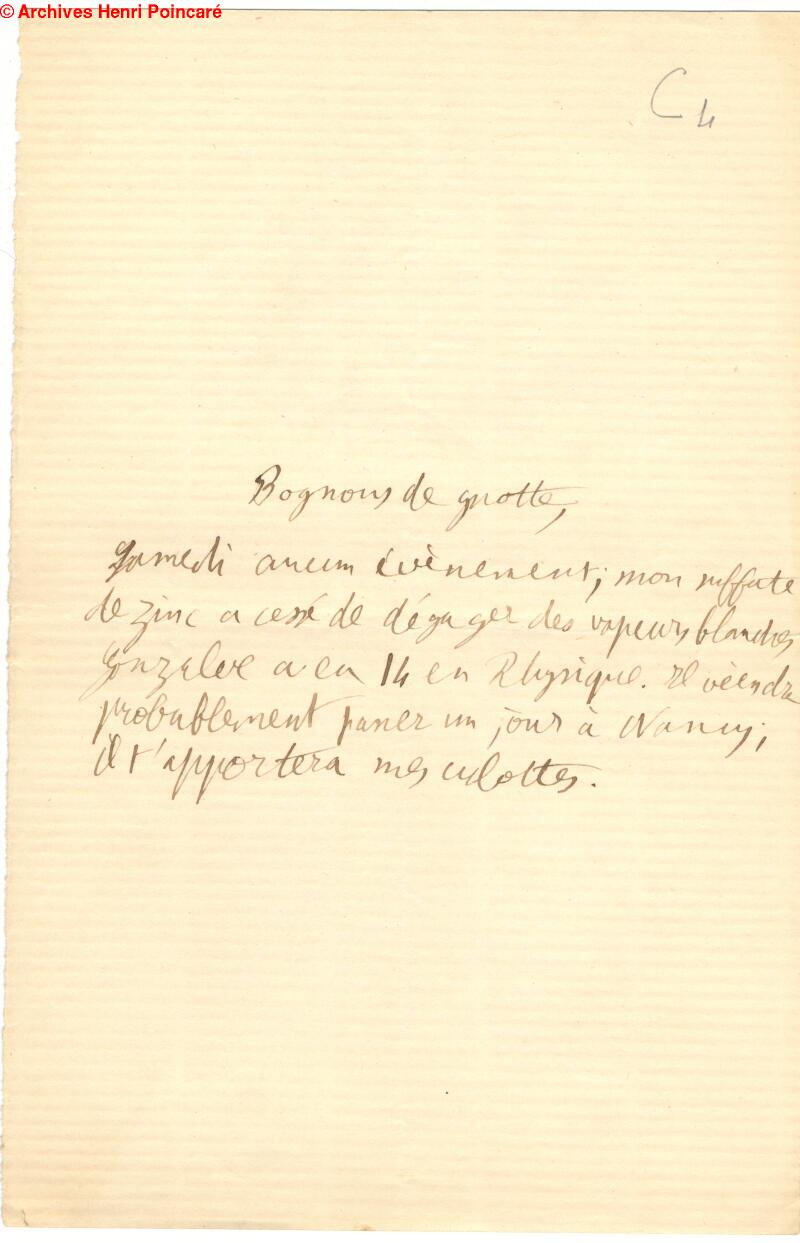 © Archives Henri Poincaré
C4
Bognons de gnotte,
Samedi aucun évènement; mon sulfate
de zinc a cessé de dégager des vapeurs blanches
Gonzalve a eu 14 en Physique. Il viendra
probablement passer un jour à Nancy;
il t'apportera mes culottes.